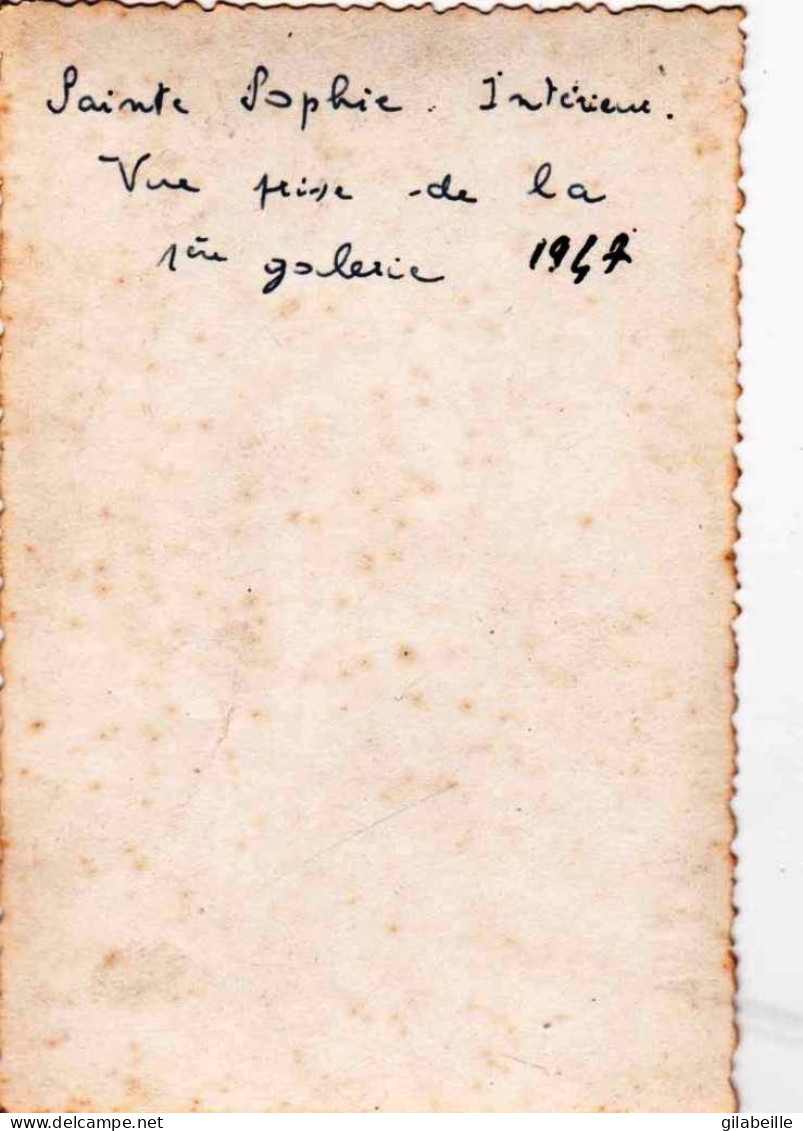 Sainte Sophie. Intérieur.
Vue prise de la
1ère galerie 1947
gilabeille